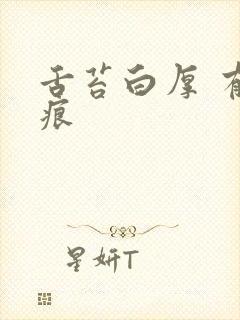 舌苔白厚 有
痕
星妍T